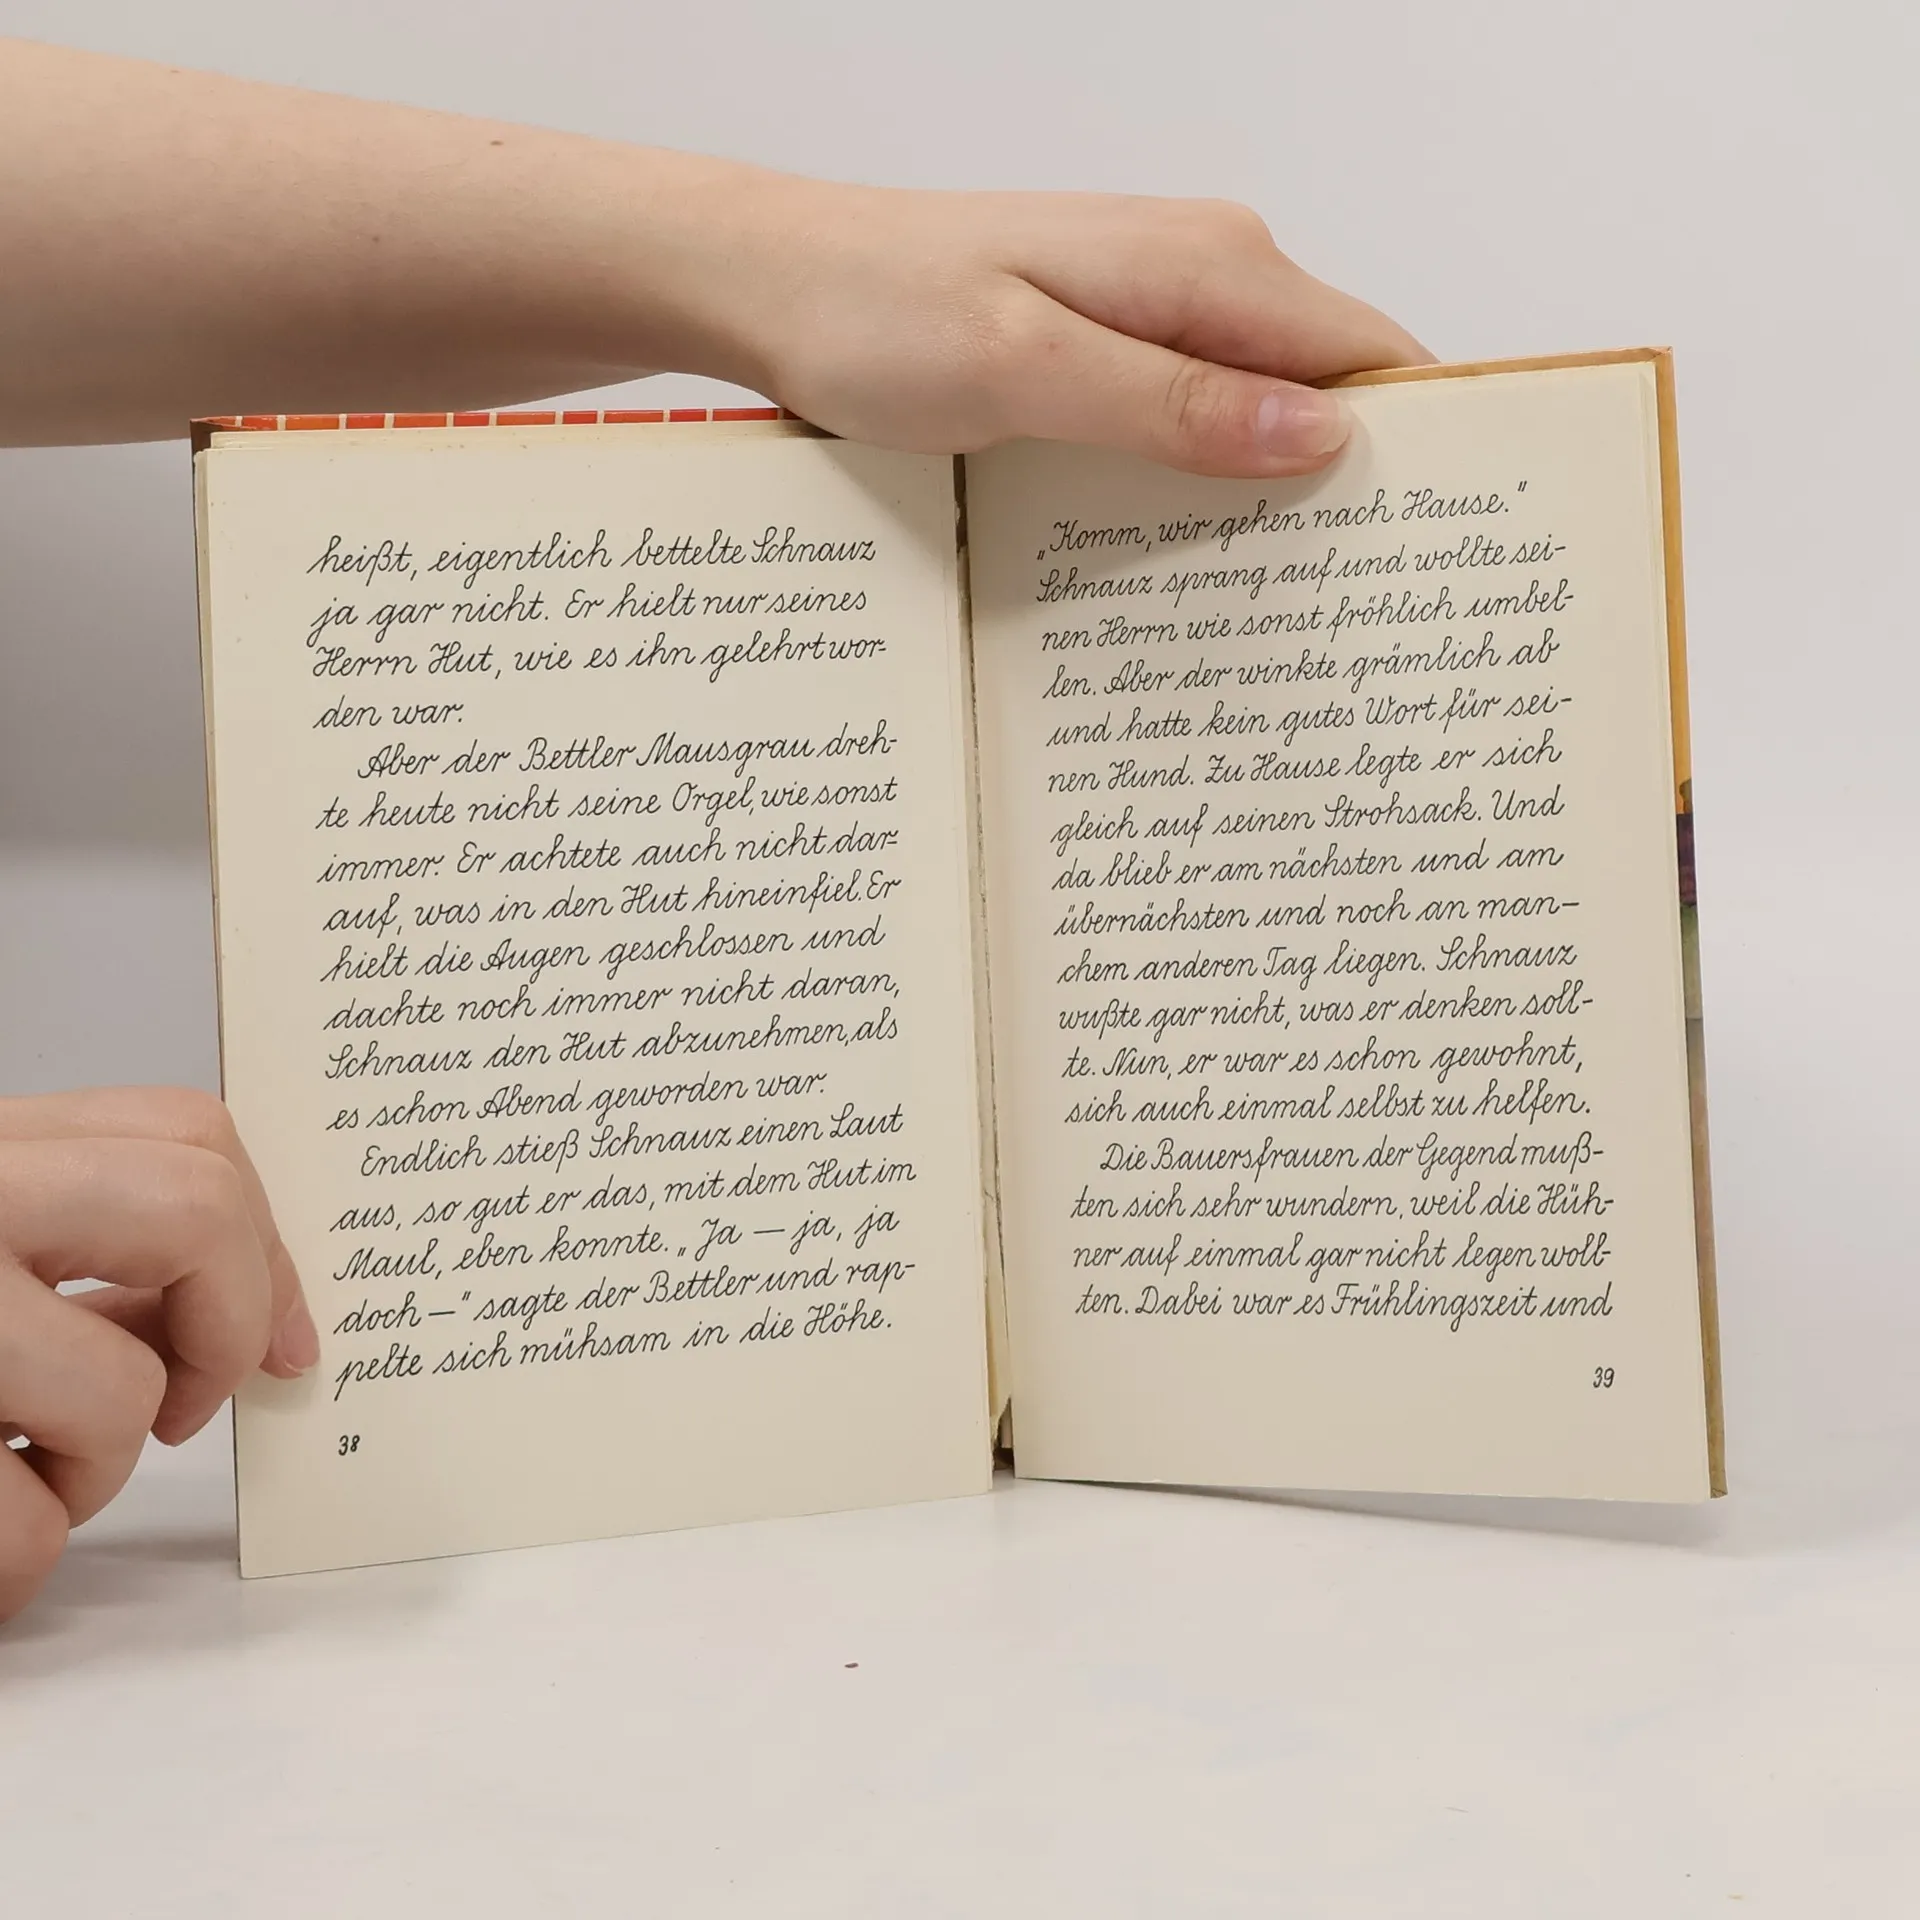 heißt, eigentlich bettelte Schnauz
ja gar nicht. Er hielt nur seines
Herrn Hut, wie es ihn gelehrt wor-
den war.
Aber der Bettler Mausgrau dreh-
te heute nicht seine Orgel, wie sonst
immer. Er achtete auch nicht dar-
auf, was in den Hut hineinfiel. Er
hielt die Augen geschlossen und
dachte noch immer nicht daran,
Schnauz den Hut abzunehmen, als
es schon Abend geworden war.
Endlich stieß Schnauz einen Laut
aus, so gut er das, mit dem Hut im
Maul, eben konnte. „Ja — ja, ja
doch —" sagte der Bettler und rap-
pelte sich mühsam in die Höhe.
38
„Komm, wir gehen nach Hause."
Schnauz sprang auf und wollte sei-
nen Herrn wie sonst fröhlich umbel-
len. Aber der winkte grämlich ab
und hatte kein gutes Wort für sei-
nen Hund. Zu Hause legte er sich
gleich auf seinen Strohsack. Und
da blieb er am nächsten und am
übernächsten und noch an man-
chem anderen Tag liegen. Schnauz
wußte gar nicht, was er denken soll-
te. Nun, er war es schon gewohnt,
sich auch einmal selbst zu helfen.
Die Bauersfrauen der Gegend muß-
ten sich sehr wundern, weil die Hüh-
ner auf einmal gar nicht legen woll-
ten. Dabei war es Frühlingszeit und
39